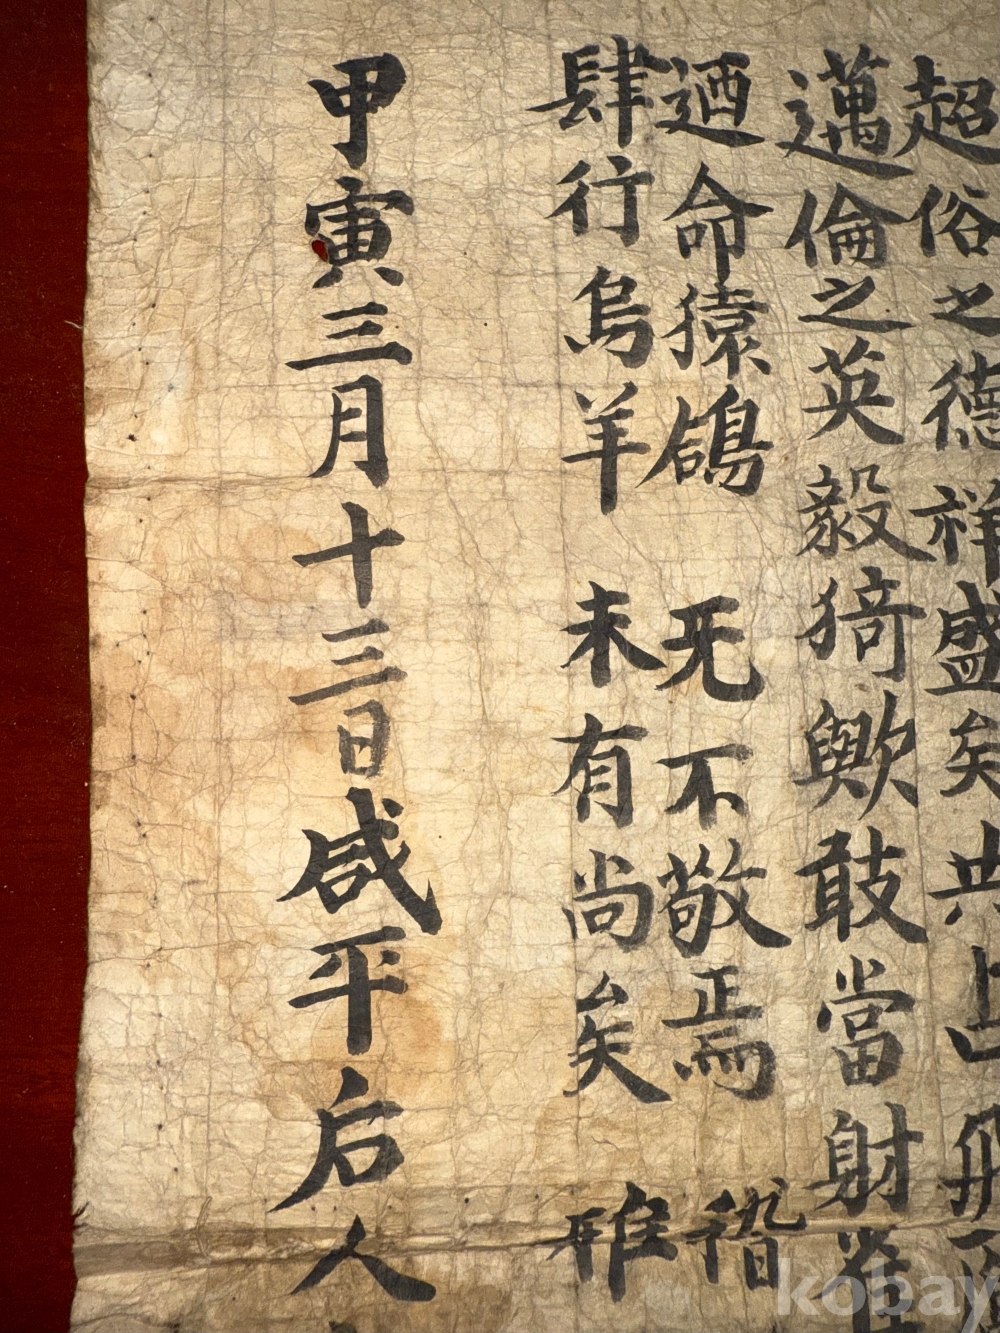 超俗之德祥盛矣共上飛
邁倫之英毅猗歟敢當射
迺命猿鴿 无不敬焉 稽
肆行烏羊 未有尚矣 雅
甲寅三月十三日咸平后人
kobay